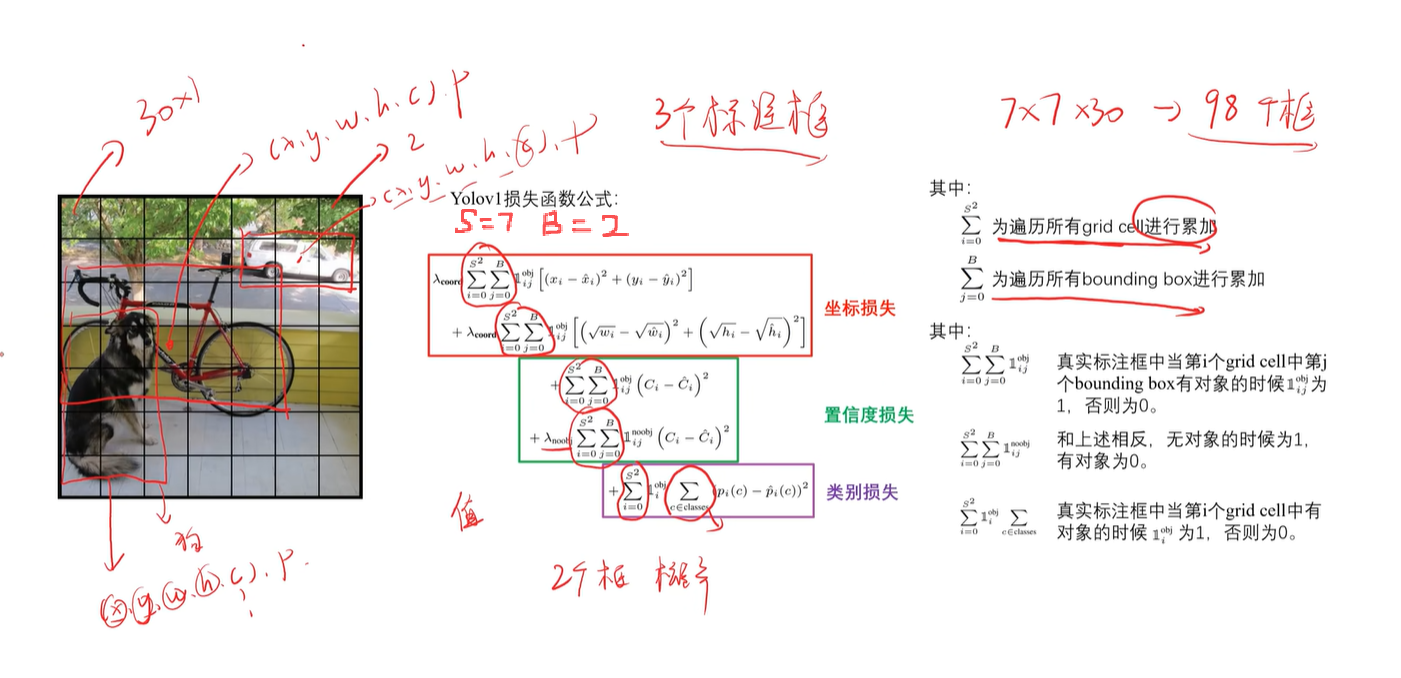 30×1
(x.y.w.h.c).p
2
3个标准框
7×7×30 → 98个框
Yolov1损失函数公式：
S=7 B=2
λcoord ∑_{i=0}^{S²} ∑_{j=0}^{B} 𝟙_{ij}^{obj} [(x_i − x̂_i)² + (y_i − ŷ_i)²]
+ λcoord ∑_{i=0}^{S²} ∑_{j=0}^{B} 𝟙_{ij}^{obj} [(√w_i − √ŵ_i)² + (√h_i − √ĥ_i)²]
坐标损失
+ ∑_{i=0}^{S²} ∑_{j=0}^{B} 𝟙_{ij}^{obj} (C_i − Ĉ_i)²
+ λnoobj ∑_{i=0}^{S²} ∑_{j=0}^{B} 𝟙_{ij}^{noobj} (C_i − Ĉ_i)²
置信度损失
+ ∑_{i=0}^{S²} 𝟙_{i}^{obj} ∑_{c∈classes} (p_i(c) − p̂_i(c))²
类别损失
值
2个框 概率
狗
(x.y.w.h.c).p.
其中：
∑_{i=0}^{S²} 为遍历所有grid cell进行累加
∑_{j=0}^{B} 为遍历所有bounding box进行累加
其中：
∑_{i=0}^{S²} ∑_{j=0}^{B} 𝟙_{ij}^{obj} 真实标注框中当第i个grid cell中第j
个bounding box有对象的时候 𝟙_{ij}^{obj} 为
1，否则为0。
∑_{i=0}^{S²} ∑_{j=0}^{B} 𝟙_{ij}^{noobj} 和上述相反，无对象的时候为1，
有对象为0。
∑_{i=0}^{S²} 𝟙_{i}^{obj} ∑_{c∈classes} 真实标注框中当第i个grid cell中有
对象的时候 𝟙_{i}^{obj} 为1，否则为0。